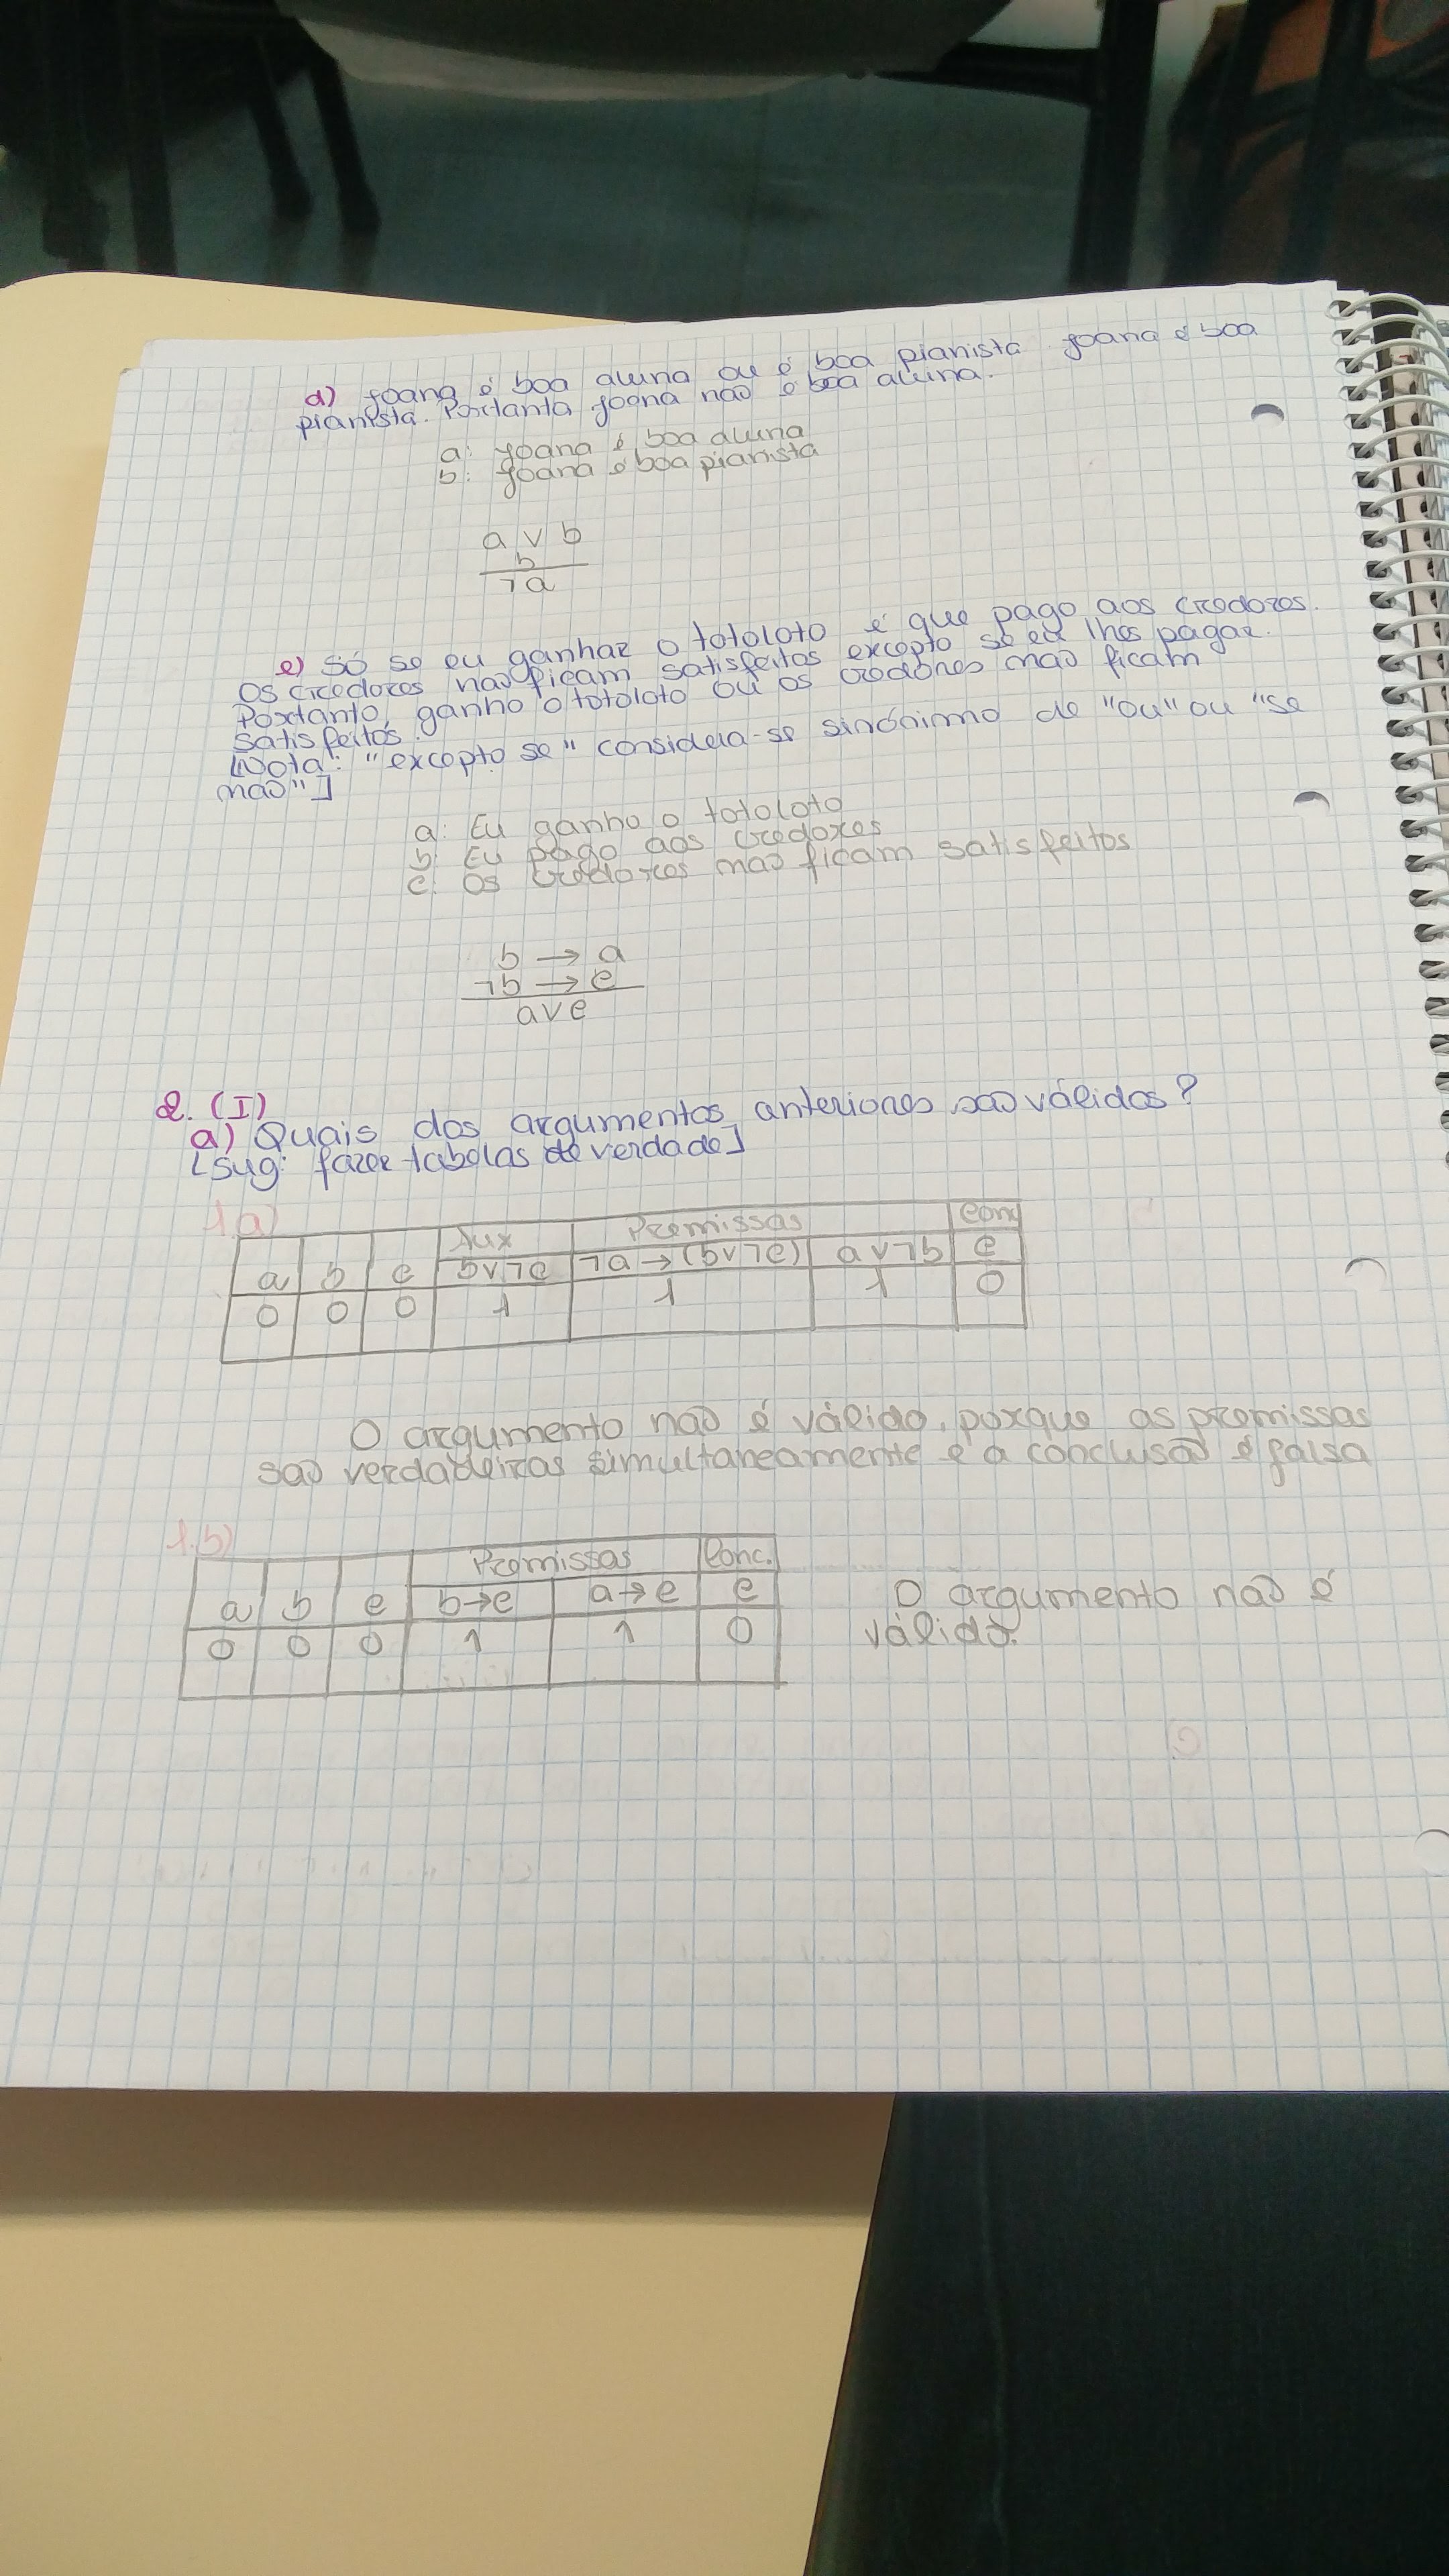 d) Joana é boa aluna ou é boa pianista. Joana é boa
pianista. Portanto Joana não é boa aluna.
a: Joana é boa aluna
b: Joana é boa pianista
a ∨ b
b
¬a
e) Só se eu ganhar o totoloto é que pago aos credores.
Os credores não ficam satisfeitos excepto se eu lhes pagar.
Portanto, ganho o totoloto ou os credores não ficam
satisfeitos.
[Nota: "excepto se" considera-se sinónimo de "ou" ou "se
não"]
a: Eu ganho o totoloto
b: Eu pago aos credores
c: Os credores não ficam satisfeitos
b → a
¬b → c
a∨c
2. (I)
a) Quais dos argumentos anteriores são válidos?
[Sug: fazer tabelas de verdade]
1.a)
Aux Premissas Conc
a b c b∨¬c ¬a→(b∨¬c) a∨¬b c
0 0 0 1 1 1 0
O argumento não é válido, porque as premissas
são verdadeiras simultaneamente e a conclusão é falsa
1.b)
Premissas Conc.
a b c b→c a→c c
0 0 0 1 1 0
O argumento não é
válido.